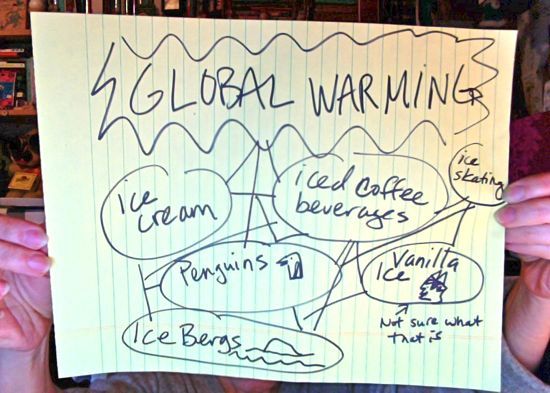 GLOBAL WARMING
ice
cream
iced coffee
beverages
ice
skating
Penguins
Vanilla
Ice
Not sure what
that is
Ice Bergs